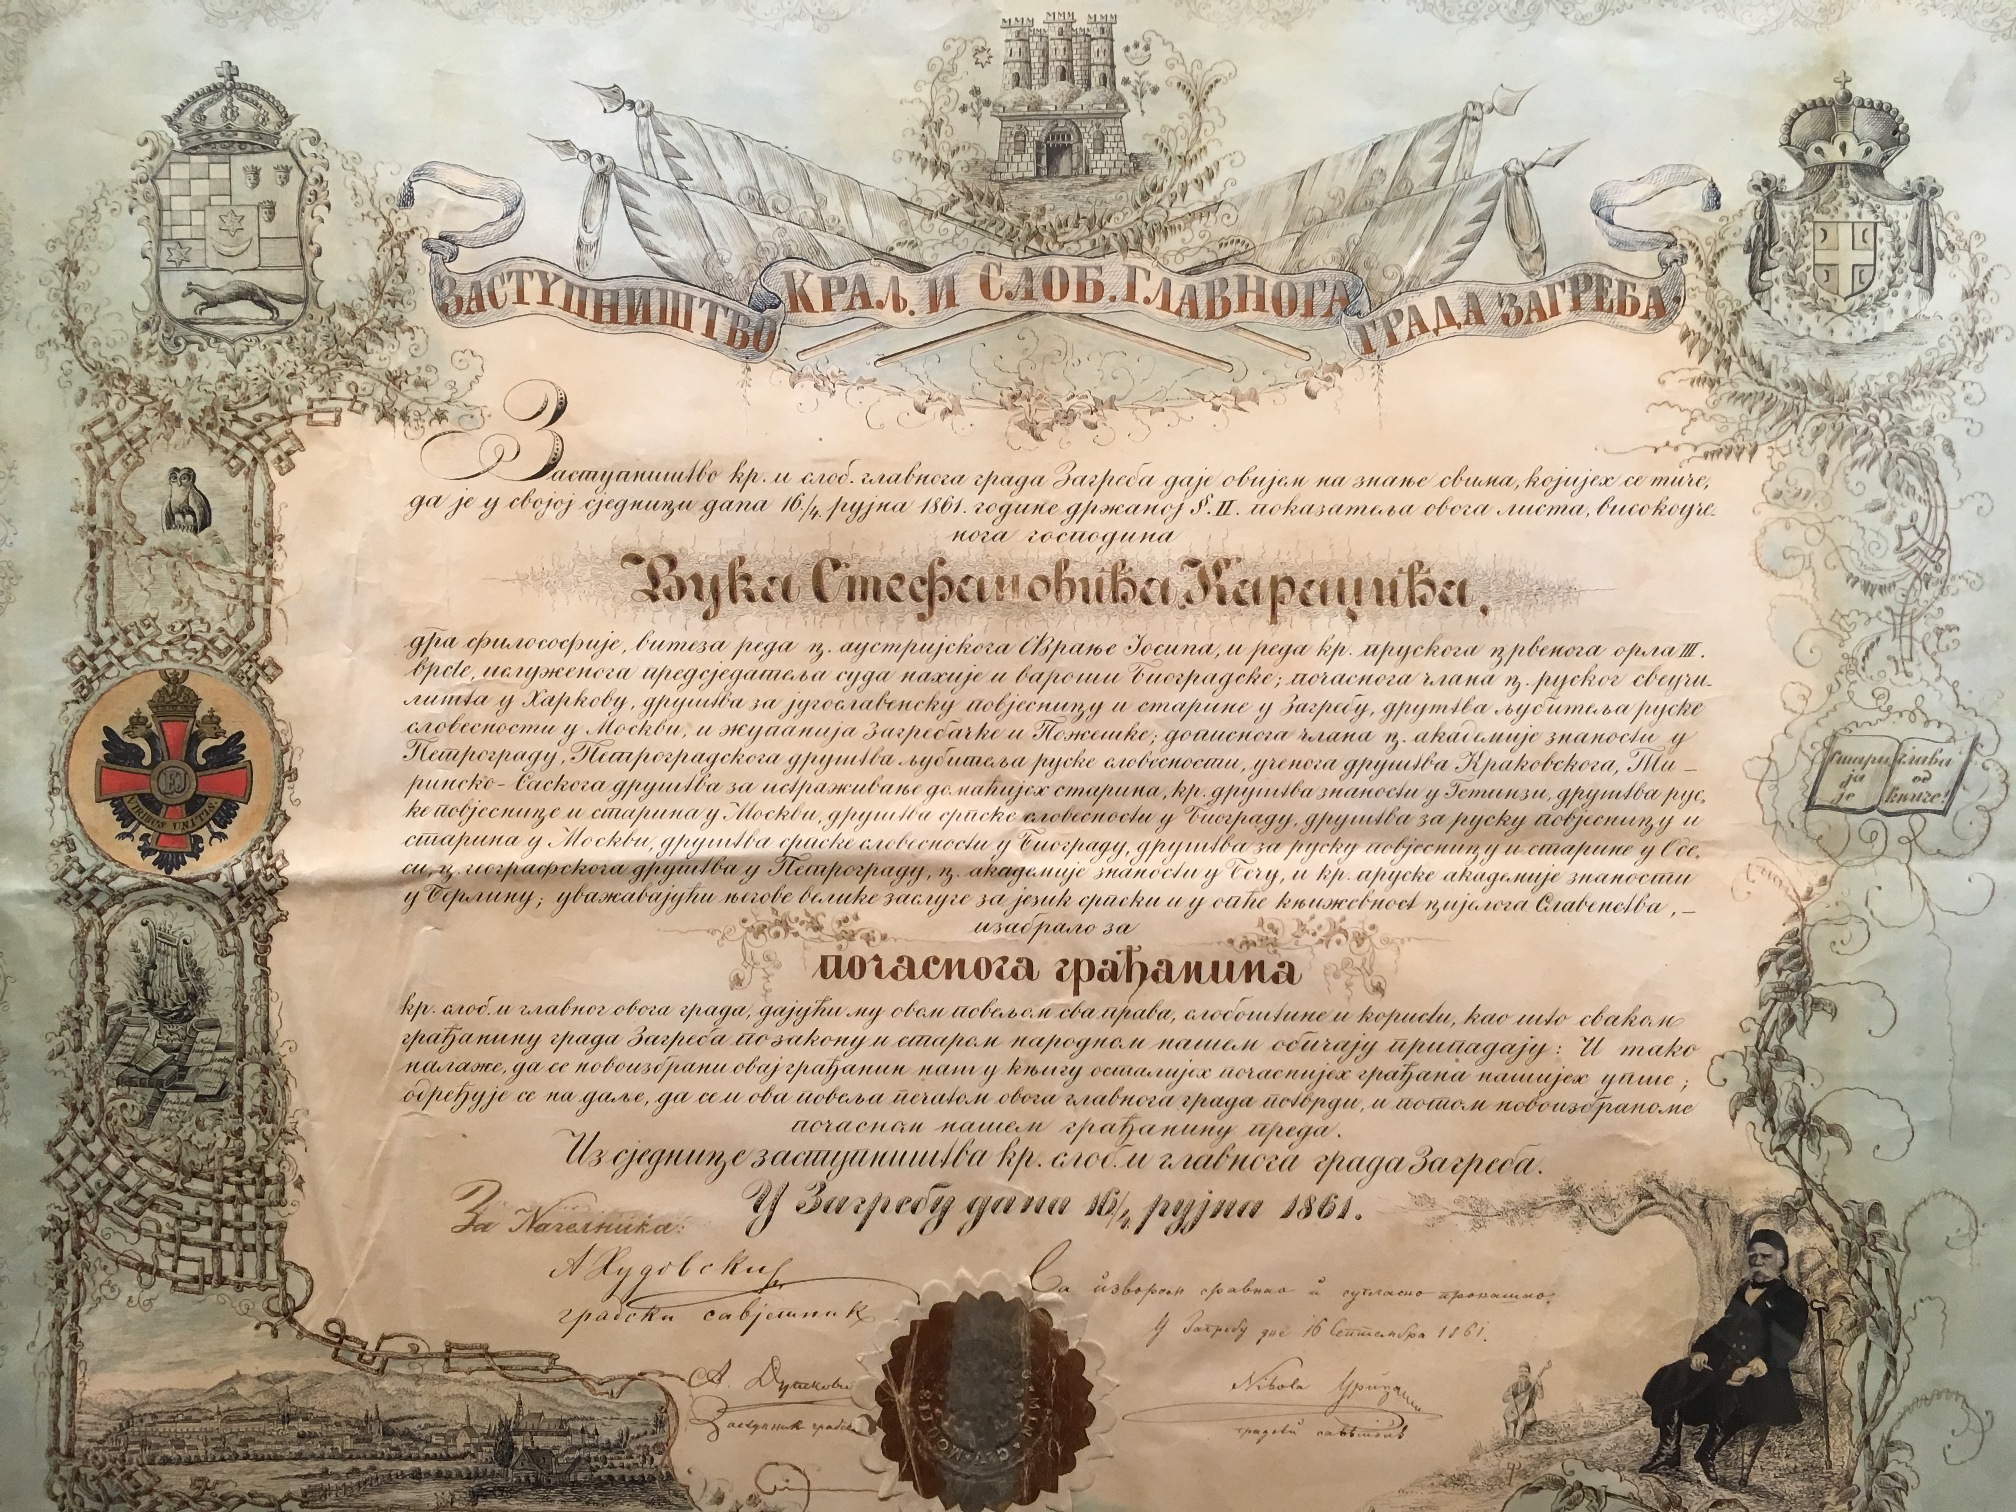 ЗАСТУПНИШТВО КРАЉ. И СЛОБ. ГЛАВНОГА ГРАДА ЗАГРЕБА.
Заступништво кр. и слоб. главнога града Загреба даје овијем на знање свима, којијех се тиче,
да је у својој сједници дана 16./4. рујна 1861. године држаној §. II. показатеља овога листа, високоуче-
нога господина
Вука Стефановића Караџића,
дра философије, витеза реда ц. аустријскога Фрање Јосипа, и реда кр. прускога црвенога орла III.
врсте, ислуженога предсједатеља суда нахије и вароши Биоградске; почаснога члана ц. руског свеучи-
лишта у Харкову, друштва за југославенску повјесницу и старине у Загребу, друштва љубитеља руске
словесности у Москви, и жупанија Загребачке и Пожешке; дописнога члана ц. академије знаности у
Петрограду, Петроградскога друштва љубитеља руске словесности, ученога друштва Краковскога, Ти-
ринско-Саскога друштва за истраживање домаћијех старина, кр. друштва знаности у Гетинзи, друштва рус-
ке повјеснице и старина у Москви, друштва српске словесности у Биограду, друштва за руску повјесницу и
старина у Москви, друштва српске словесности у Биограду, друштва за руску повјесницу и старине у Оде-
си, ц. географскога друштва у Петрограду, ц. академије знаности у Бечу, и кр. пруске академије знаности
у Берлину; уважавајући његове велике заслуге за језик српски и у опће књижевност цијелога Славенства, —
изабрало за
почаснога грађанина
кр. слоб. и главног овога града, дајући му овом повељом сва права, слобоштине и користи, као што сваком
грађанину града Загреба по закону и старом народном нашем обичају припадају: И тако
налаже, да се новоизбрани овај грађанин наш у књигу осталијех почаснијех грађана нашијех упише;
одређује се на даље, да се и ова повеља печатом овога главнога града потврди, и потом новоизбраноме
почасном нашем грађанину преда.
Из сједнице заступништва кр. слоб. и главнога града Загреба.
У Загребу дана 16/4 рујна 1861.
За Начелника:
А Худовски
градски савјетник
Са извором сравнио и сугласно пронашао:
У Загребу дне 16 Септембра 1861.
Nikola
А.
Заступник градски
VIRIBUS UNITIS
FJ
Стари
ја
је
глава
од
књиге!